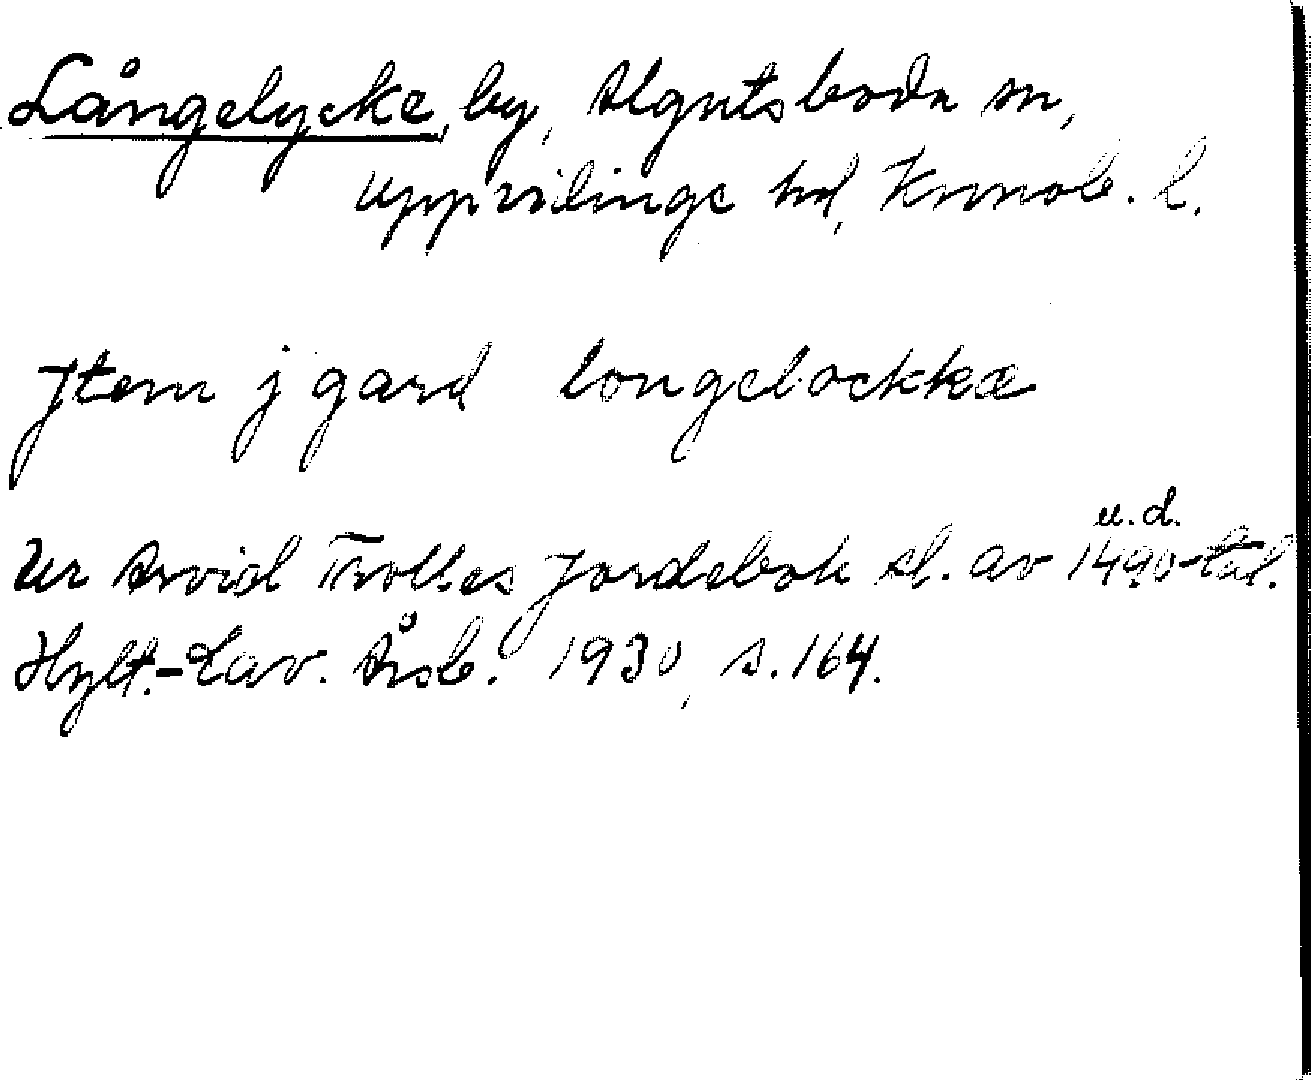 Långelycke, by, Algutsboda sn,
Uppvidinge hd, Kronob. l.
Jtem j gard longelockkæ
u.d.
Ur Arvid Trolles Jordebok sl. av 1490-tal.
Hylt.-Cav. Årsb. 1930, s. 164.